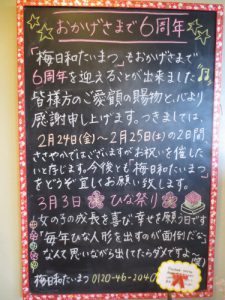 おかげさまで6周年
「梅日和たいまつ」もおかげさまで
6周年を迎えることが出来ました
皆様方のご愛顧の賜物と、心より
感謝申し上げます。つきましては、
2月24日(金)~2月25日(土)の2日間
ささやかではございますがお祝いを催した
いと存じます。今後とも「梅日和たいまつ」
をどうぞ宜しくお願い致します。
3月3日 ひな祭り
女の子の成長を喜び、幸せを願う日です
「毎年ひな人形を出すのが面倒だな」
なんて思いながら出してたらダメですよ~
梅日和たいまつ 0120-46-2040